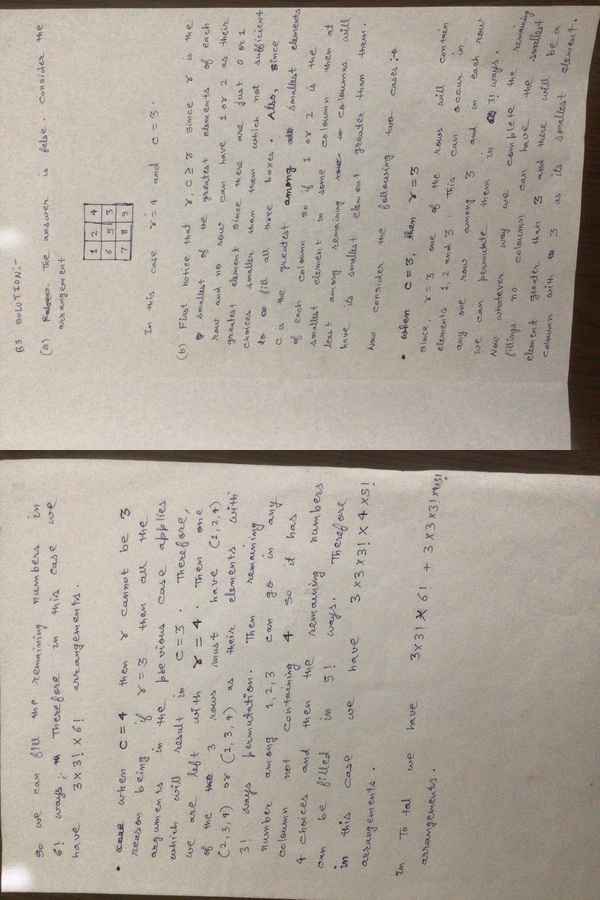 B3 SOLUTION:-
(a) The answer is false. Consider the
arrangement
1 2 4
6 5 3
7 8 9
In this case r=4 and c=3.
(b) First notice that r, c ≥ 3 since r is the
smallest of the greatest elements of each
row and no row can have 1 or 2 as their
greatest element since there are just 0 or 1
choices smaller than them which not sufficient
to fill all three boxes. Also, since
c is the greatest among smallest elements
of each column so if 1 or 2 is the
smallest element in some column then at
least among remaining columns will
have its smallest element greater than them.
Now consider the following two cases :-
• when c = 3, then r = 3
since, r = 3 one of the rows will contain
elements 1, 2 and 3. This can occur in
any one row among 3 and in each row
we can permutate them in 3! ways.
Now whatever way we complete the remaining
fillings no column can have the smallest
element greater than 3 and there will be a
column with 3 as its smallest element.
so we can fill the remaining numbers in
6! ways. Therefore in this case we
have 3 x 3! x 6! arrangements.
• when c = 4 then r cannot be 3
reason being if r = 3 then all the
arguments in the previous case applies
which will result in c = 3. Therefore,
we are left with r = 4. Then one
of the 3 rows must have (1,2,4)
(2,3,4) or (1,3,4) as their elements with
3! ways permutation. Then remaining
number among 1,2,3 can go in any
column not containing 4 so it has
4 choices and then the remaining numbers
can be filled in 5! ways. Therefore
in this case we have 3 x 3 x 3! x 4 x 5!
arrangements.
In Total we have 3x3! x 6! + 3x3x3!x4x5!
arrangements.